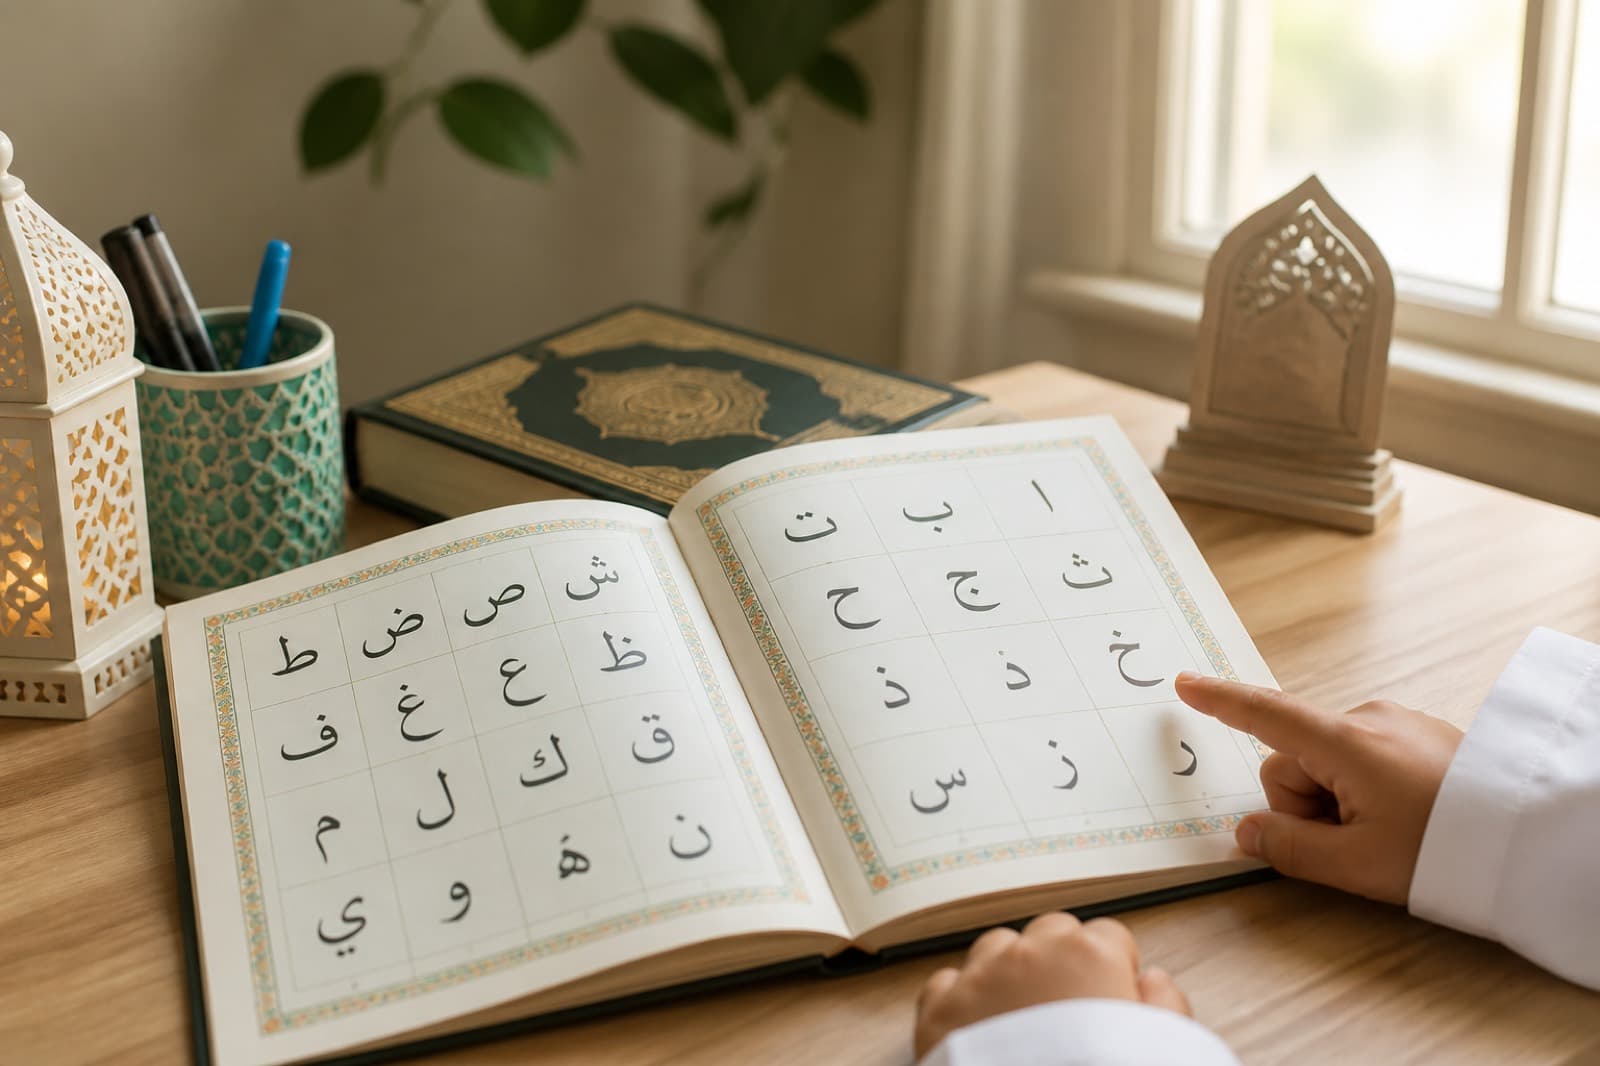 ا ب ت
ث ج ح
خ د ذ
ر ز س
ش ص ض ط
ظ ع غ ف
ق ك ل م
ن ه و ي